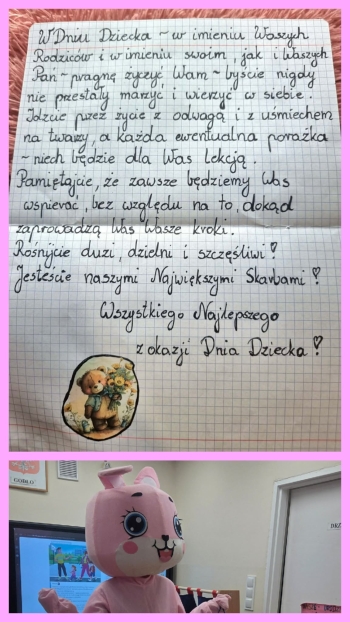 W Dniu Dziecka ~ w imieniu Waszych
Rodziców i w imieniu swoim, jak i Waszych
Pań ~ pragnę życzyć Wam ~ byście nigdy
nie przestały marzyć i wierzyć w siebie.
Idźcie przez życie z odwagą i z uśmiechem
na twarzy, a każda ewentualna porażka
~ niech będzie dla Was lekcją.
Pamiętajcie, że zawsze będziemy Was
wspierać, bez względu na to, dokąd
zaprowadzą Was Wasze kroki.
Rośnijcie duzi, dzielni i szczęśliwi!
Jesteście naszymi Największymi Skarbami!
Wszystkiego Najlepszego
z okazji Dnia Dziecka!
GODŁO